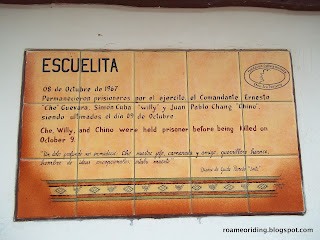 ESCUELITA
08 de Octubre de 1967
Permanecieron prisioneros por el ejercito, el Comandante Ernesto
"Che" Guevara, Simón Cuba "Willy" y Juan Pablo Chang "Chino",
siendo ultimados el día 09 de Octubre
Che, Willy, and Chino were held prisoner before being killed on
October 9.
"Un dolo profundo me
Che nuestro jefe, camarada y amigo, guerrillero heroico,
hombre de ideas
Diario de
roameoriding.blogspot.com